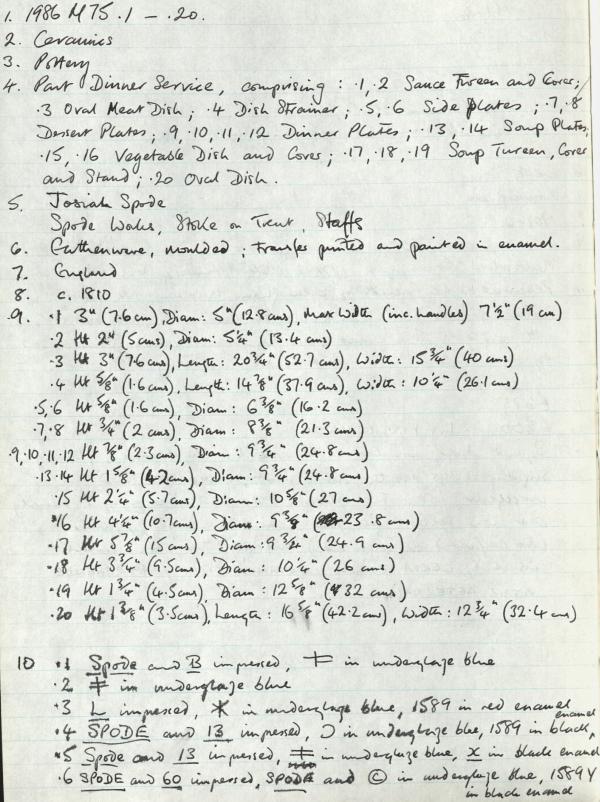 1. 1986 M75 .1 – .20.
2. Ceramics
3. Pottery
4. Part Dinner Service, comprising: .1, .2 Sauce Tureen and Cover;
.3 Oval Meat Dish; .4 Dish Strainer; .5, .6 Side Plates; .7, .8
Dessert Plates; .9, .10, .11, .12 Dinner Plates; .13, .14 Soup Plates,
.15, .16 Vegetable Dish and Cover; .17, .18, .19 Soup Tureen, Cover
and Stand; .20 Oval Dish.
5. Josiah Spode
Spode Works, Stoke on Trent, Staffs
6. Earthenware, moulded; transfer printed and painted in enamel.
7. England
8. c. 1810
.9. .1 3" (7.6cm), Diam: 5" (12.8cms), Max Width (inc. handles) 7½" (19cm)
.2 Ht 2" (5cms), Diam: 5¼" (13.4cms)
.3 Ht 3" (7.6cms), Length: 20¾" (52.7cms), Width: 15¾" (40 cms)
.4 Ht ⅝" (1.6cms), Length: 14⅞" (37.9cms), Width: 10¼" (26.1cms)
.5, .6 Ht ⅝" (1.6cms), Diam: 6⅜" (16.2 cms)
.7, .8 Ht ¾" (2 cms), Diam: 8⅜" (21.3cms)
.9, .10, .11, .12 Ht ⅞" (2.3cms), Diam: 9¾" (24.8cms)
.13 .14 Ht 1⅝" (4.2cms), Diam: 9¾" (24.8cms)
.15 Ht 2¼" (5.7cms), Diam: 10⅝" (27cms)
.16 Ht 4¼" (10.7cms), Diam: 9⅜" (23.8cms)
.17 Ht 5⅞" (15cms), Diam: 9¾" (24.9 cms)
.18 Ht 3¾" (9.5cms), Diam: 10¼" (26 cms)
.19 Ht 1¾" (4.5cms), Diam: 12⅝" (32 cms)
.20 Ht 1⅜" (3.5cms), Length: 16⅝" (42.2cms), Width: 12¾" (32.4cms)
10 .1 Spode and B impressed, in underglaze blue
.2 in underglaze blue
.3 L impressed, in underglaze blue, 1589 in red enamel
.4 SPODE and 13 impressed, in underglaze blue, 1589 in black enamel,
.5 Spode and 13 impressed, in underglaze blue, x in black enamel
.6 SPODE and 60 impressed, SPODE and © in underglaze blue, 1589 Y
in black enamel